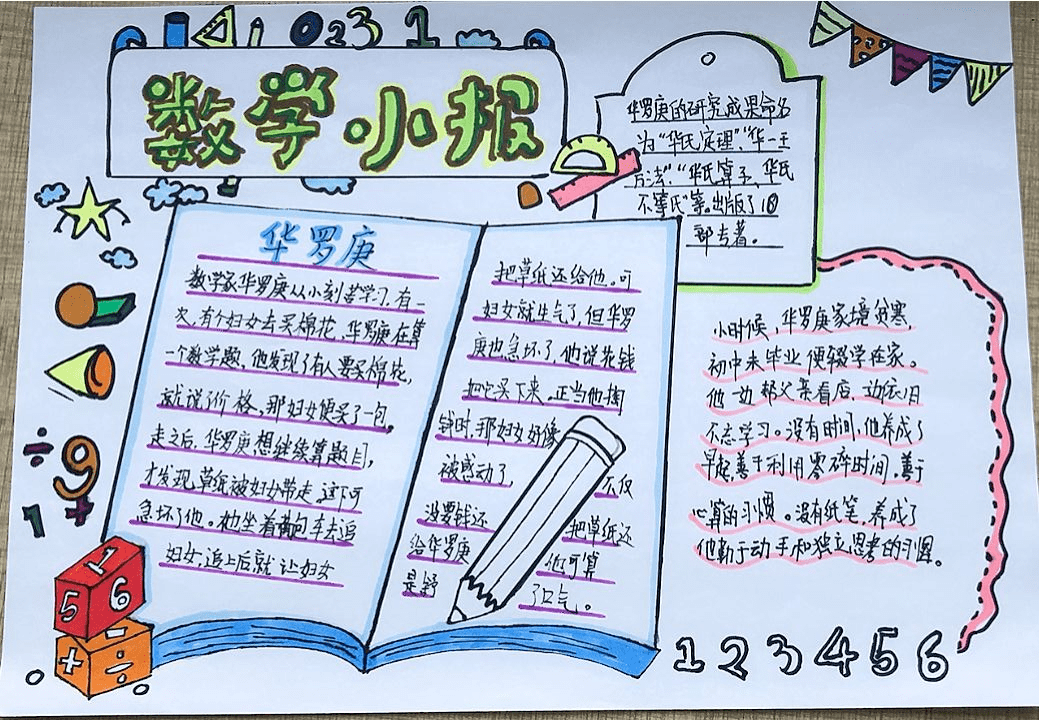 0 2 3 1
数学小报
华罗庚的研究成果命名
为“华氏定理”、“华一王
方法”“华氏算子、华氏
不等氏”等。出版了18
部专著。
华罗庚
数学家华罗庚从小刻苦学习,有一
次,有个妇女去买棉花,华罗庚在算
一个数学题,他发现了有人要买棉花,
就说了价格,那妇女便买了一包。
走之后,华罗庚想继续算题目,
才发现草纸被妇女带走,这下可
急坏了他。他坐着黄包车去追
妇女,追上后就让妇女
把草纸还给他。可
妇女就生气了,但华罗
庚也急坏了,他说花钱
把它买下来。正当他掏
钱时,那妇女好像
被感动了, 不仅
没要钱还 把草纸还
给华罗庚 他可算
是舒 了口气。
小时候,华罗庚家境贫寒,
初中未毕业便辍学在家。
他一边帮父亲看店,边依旧
不忘学习。没有时间,他养成了
早起,善于利用零碎时间,善于
心算的习惯。没有纸笔,养成了
他勤于动手和独立思考的习惯。
÷ 9
1 +
1
5 6
+ ÷
1 2 3 4 5 6